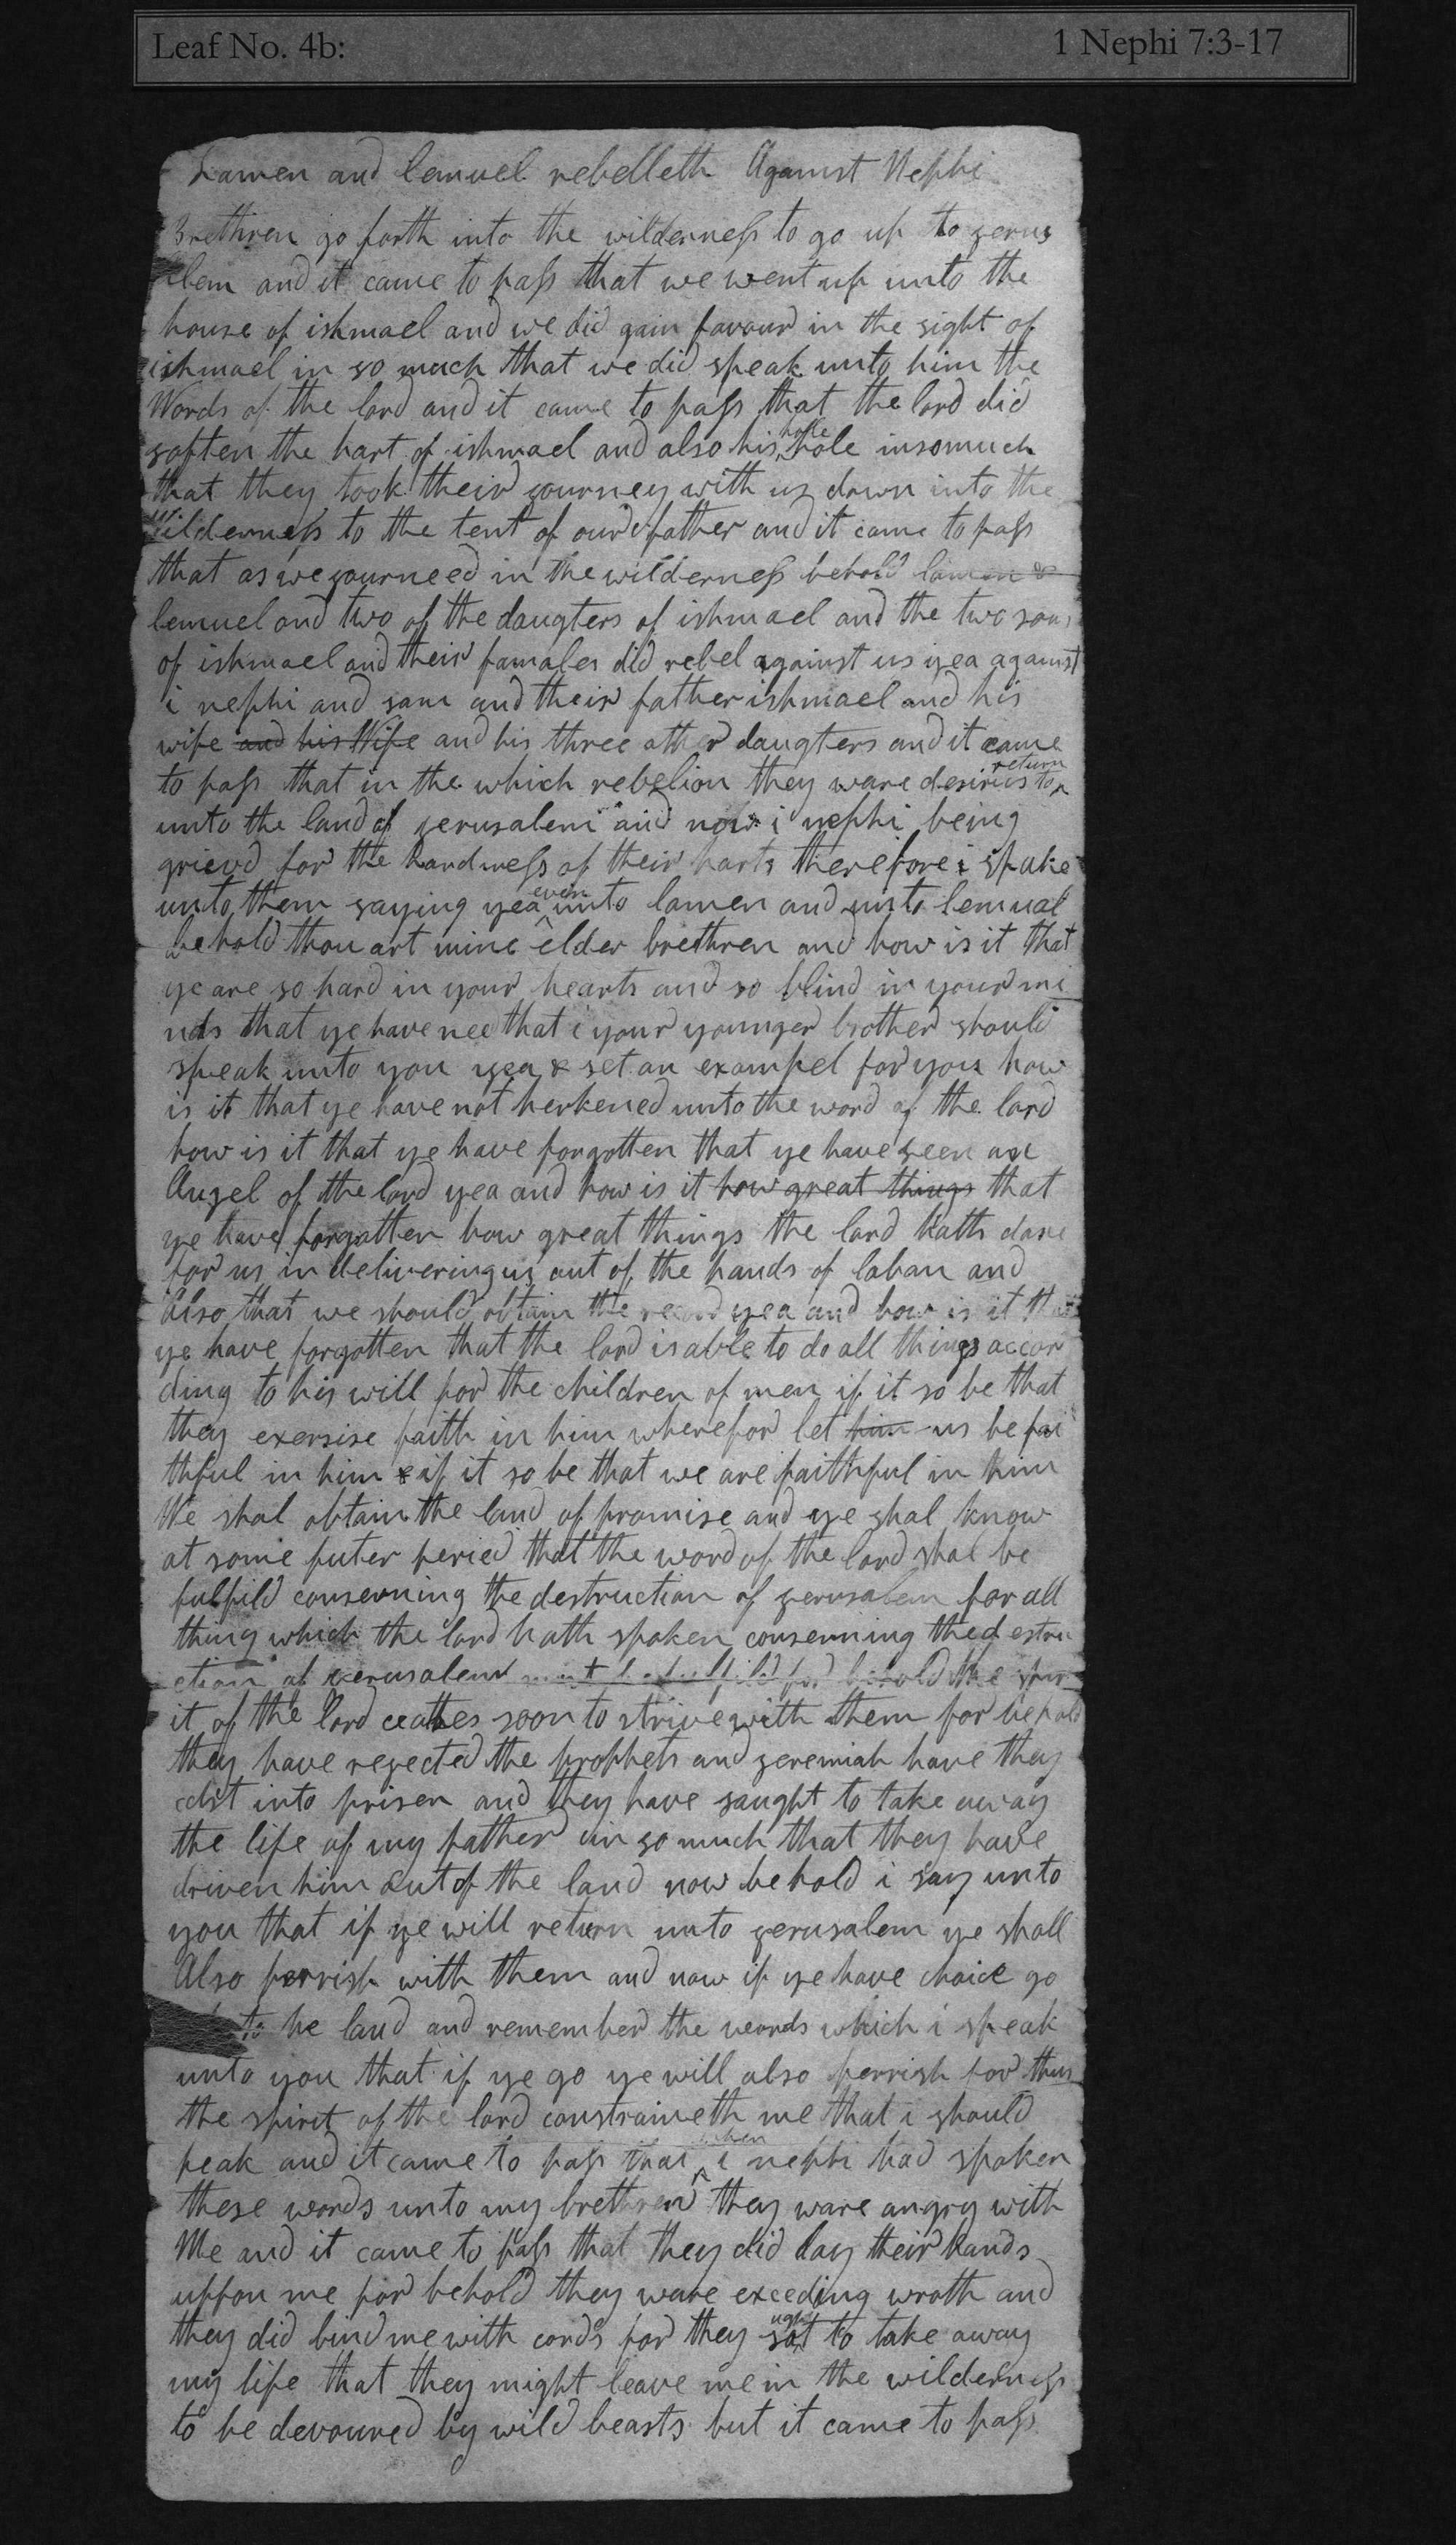 Leaf No. 4b:
1 Nephi 7:3-17
Lamen and lemuel rebelleth Against Nephi
Brethren go forth into the wilderness to go up to gerus
alem and it came to pass that we went up unto the
house of ishmael and we did gain favour in the sight of
ishmael in so much that we did speak unto him the
Words of the lord and it came to pass that the lord did
soften the hart of ishmael and also his hole hole insomuch
that they took their journey with us down into the
Wilderness to the tent of our father and it came to pass
that as we journeed in the wilderness behold lamen &
lemuel and two of the daugters of ishmael and the two sons
of ishmael and their famales did rebel against us yea against
i nephi and sam and their father ishmael and his
wife and his Wife and his three other daugters and it came
to pass that in the which rebelion they ware desirus to return
unto the land of jerusalem and now i nephi being
grievd for the hardness of their harts therefore i spake
unto them saying yea even unto lamen and unto lemual
behold thou art mine elder brethren and how is it that
ye are so hard in your hearts and so blind in your mi
nds that ye have nee that i your younger brother should
speak unto you yea & set an exampel for you how
is it that ye have not herkened unto the word of the lord
how is it that ye have forgotten that ye have seen an
Angel of the lord yea and how is it how great things that
ye have forgotten how great things the lord hath done
for us in delivering us out of the hands of laban and
Also that we should obtain the record yea and how is it that
ye have forgotten that the lord is able to do all things accor
ding to his will for the children of men if it so be that
they exersise faith in him wherefor let him us be fai
thful in him & if it so be that we are faithful in him
We shal obtain the land of promise and ye shal know
at some futer peried that the word of the lord shal be
fulfild conserning the destruction of jerusalem for all
thing which the lord hath spoken conserning the destru
ction of jerusalem must be fulfild for behold the spir
it of the lord ceathes soon to strive with them for behold
they have rejected the prophets and jeremiah have they
cast into prisen and they have saught to take away
the life of my father in so much that they have
driven him out of the land now behold i say unto
you that if ye will return unto jerusalem ye shall
Also perrish with them and now if ye have choice go
to he land and remember the words which i speak
unto you that if ye go ye will also perrish for thus
the spirit of the lord constraineth me that i should
peak and it came to pass that when i nephi had spoken
these words unto my brethren they ware angry with
Me and it came to pass that they did lay their hands
uppon me for behold they ware exceding wroth and
they did bind me with cords for they saught to take away
my life that they might leave me in the wilderness
to be devoured by wild beasts but it came to pass